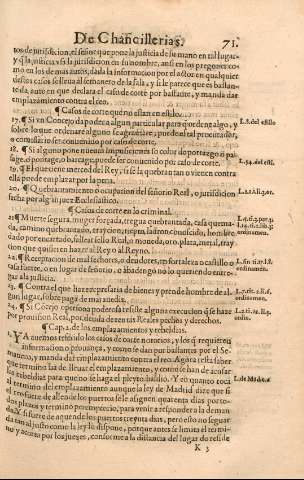 De Chancillerias. 71.
tos de jurisdicion, el señor que pone la justicia de su mano en tal lugar
y q̃ la justicia y si la jurisdicion en su nombre, ansi en los pregones co
mo en los de mas autos, dada la informacion por el actor en qualquier
destos casos se lleua al semanero de la sala, y si le parece que es bastan-
te da auto en que declara el caso de corte por bastante, y manda dar
emplazamiento contra el reo.
¶ Casos de corte que no estan en estilo.
17. ¶ Si vn Concejo da poder a algun particular para que de en algo, y
sobre lo que ordenare alguno se agrauiare, puedo el tal procurador,
o comissario ser conuenido por caso de corte.
18. ¶ Si alguno pone nueuas impusiciones so color de potrazgo o pas
sage, o portage, o barcage, puede ser conuenido por caso de corte.
19. ¶ El que tiene merced del Rey, si se la quebratan o vienen contra
ella puede emplazar
20. ¶ Quebrantamiento o vsurpacion del señorio Real, o jurisdicion
fecha por algun juez Ecclesiastico.
¶ Casos de corte en lo criminal.
21 ¶ Muerte segura, muger forçada, tregua quebrantada, casa quema-
da, camino quebrantado, traycion, riepto, ladron
dado por encartado, falsar sello Real, o moneda, oro, plata, metal, tray
cion que quieren hazer al Rey o al Reyno.
22. ¶ Receptacion de mal fechores, o deudores, en fortaleza o castillo o
casa fuerte, o en lugar de señorio, o abadengo no lo queriendo entre-
gar a la justicia.
23. ¶ Contra el que haze represaria de bienes y prende hombre de al-
gun lugar, sobre paga de marauedis.
24. ¶ Si Concejo o persona poderosa resiste alguna execucion q̃ se haze
por prouision Real, por deuda deuen tus Reales pechos y derechos.
¶ Cap. 2. de los emplazamientos y rebeldias.
1. YA auemos tratado los casos de corte notorios, y los q̃ requieren
informacion o prouança, y como se dan por bastantes por el Se-
manero, y manda dar emplazamiento contra el reo. Agora resta saber
que termino ha de lleuar el emplazamiento, y como se han de acusar
las rebeldias para que no se haga el pleyto baldio. Y en quanto toca
al termino del emplazamiento aunque la ley de Madrid dize que si
el reo fuere de allende los puertos se le assignen quarenta dias por to-
dos plazos y termino perentorio, para venir a responder a la deman
da. Y si fuere de aquende los puertos treynta dias, pero esto no se guar
da tan al justo como la ley lo dispone, porque antes se limita el termi-
no y acorta por los juezes, conforme a la distancia del lugar do reside
K 3
L.8. del estilo
L.54. del esti.
L.4. ti.3. par. 3.
ordinamen.
ordinamen.
L. 2. ti. 14. li. 3.
ordin.
L. de Madri.